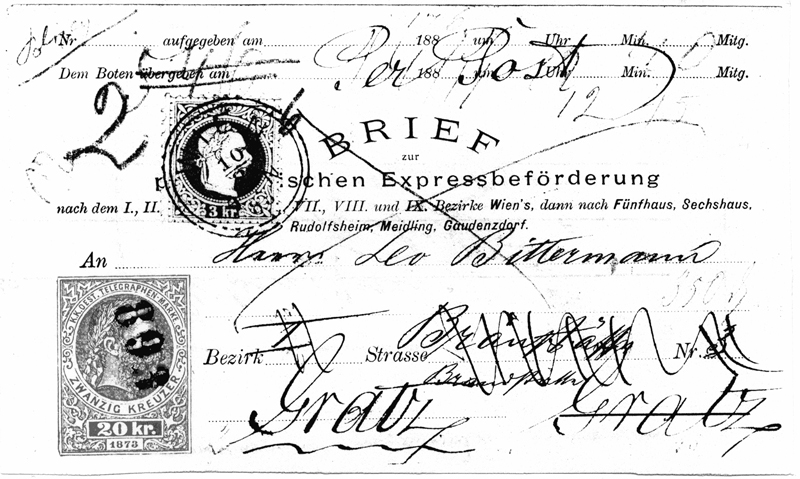 Nr aufgegeben am 188 um Uhr Min. Mitg.
Dem Boten übergeben am 188 um Uhr Min. Mitg.
Per Post
12
2
BRIEF
zur
p ischen Expressbeförderung
nach dem I., II. VII., VIII. und IX. Bezirke Wien's, dann nach Fünfhaus, Sechshaus,
Rudolfsheim, Meidling, Gaudenzdorf.
WIEN
10
3 kr.
An Herrn Leo Bittermann
K.K. OEST. TELEGRAPHEN-MARKE
ZWANZIG KREUZER
20 kr.
1873
893
Bezirk I Strasse Nr.
Gratz Gratz